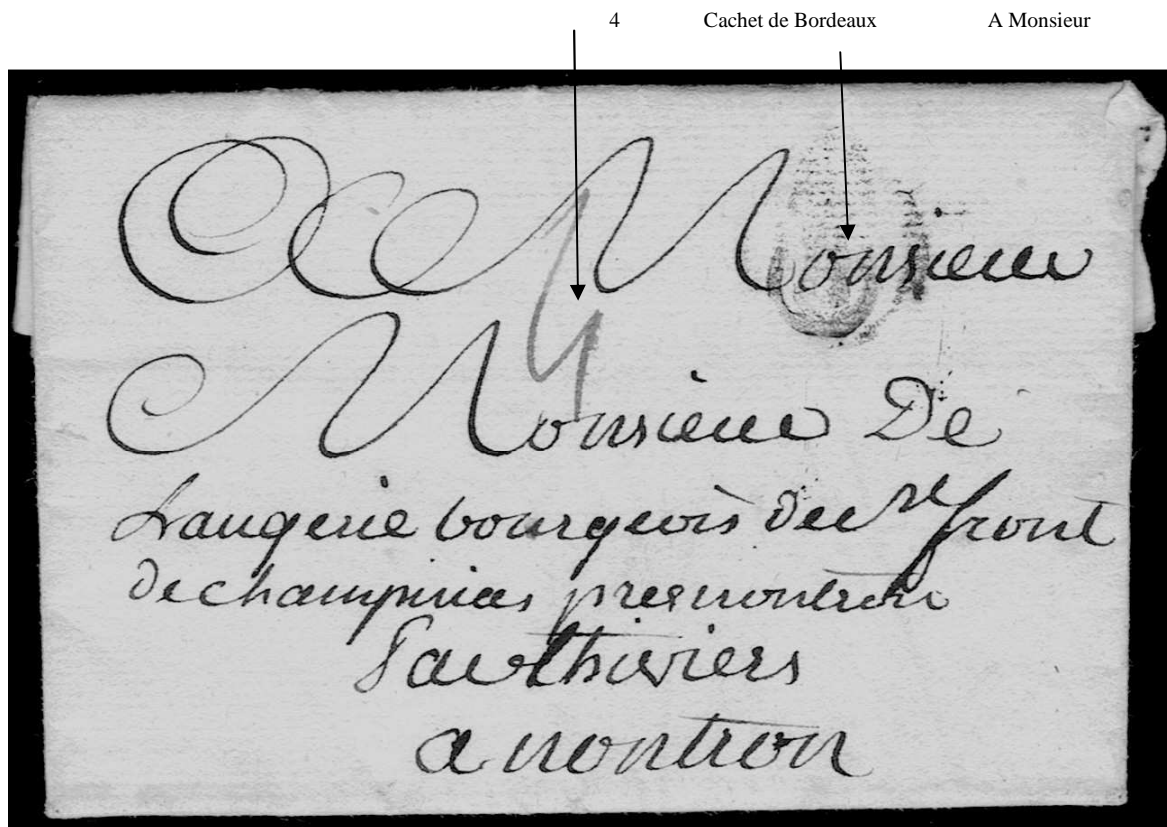 4 Cachet de Bordeaux A Monsieur
A Monsieur
4
Monsieur De
Laugerie bourgeois de st front
de champnias pres nontron
Par Thiviers
a nontron